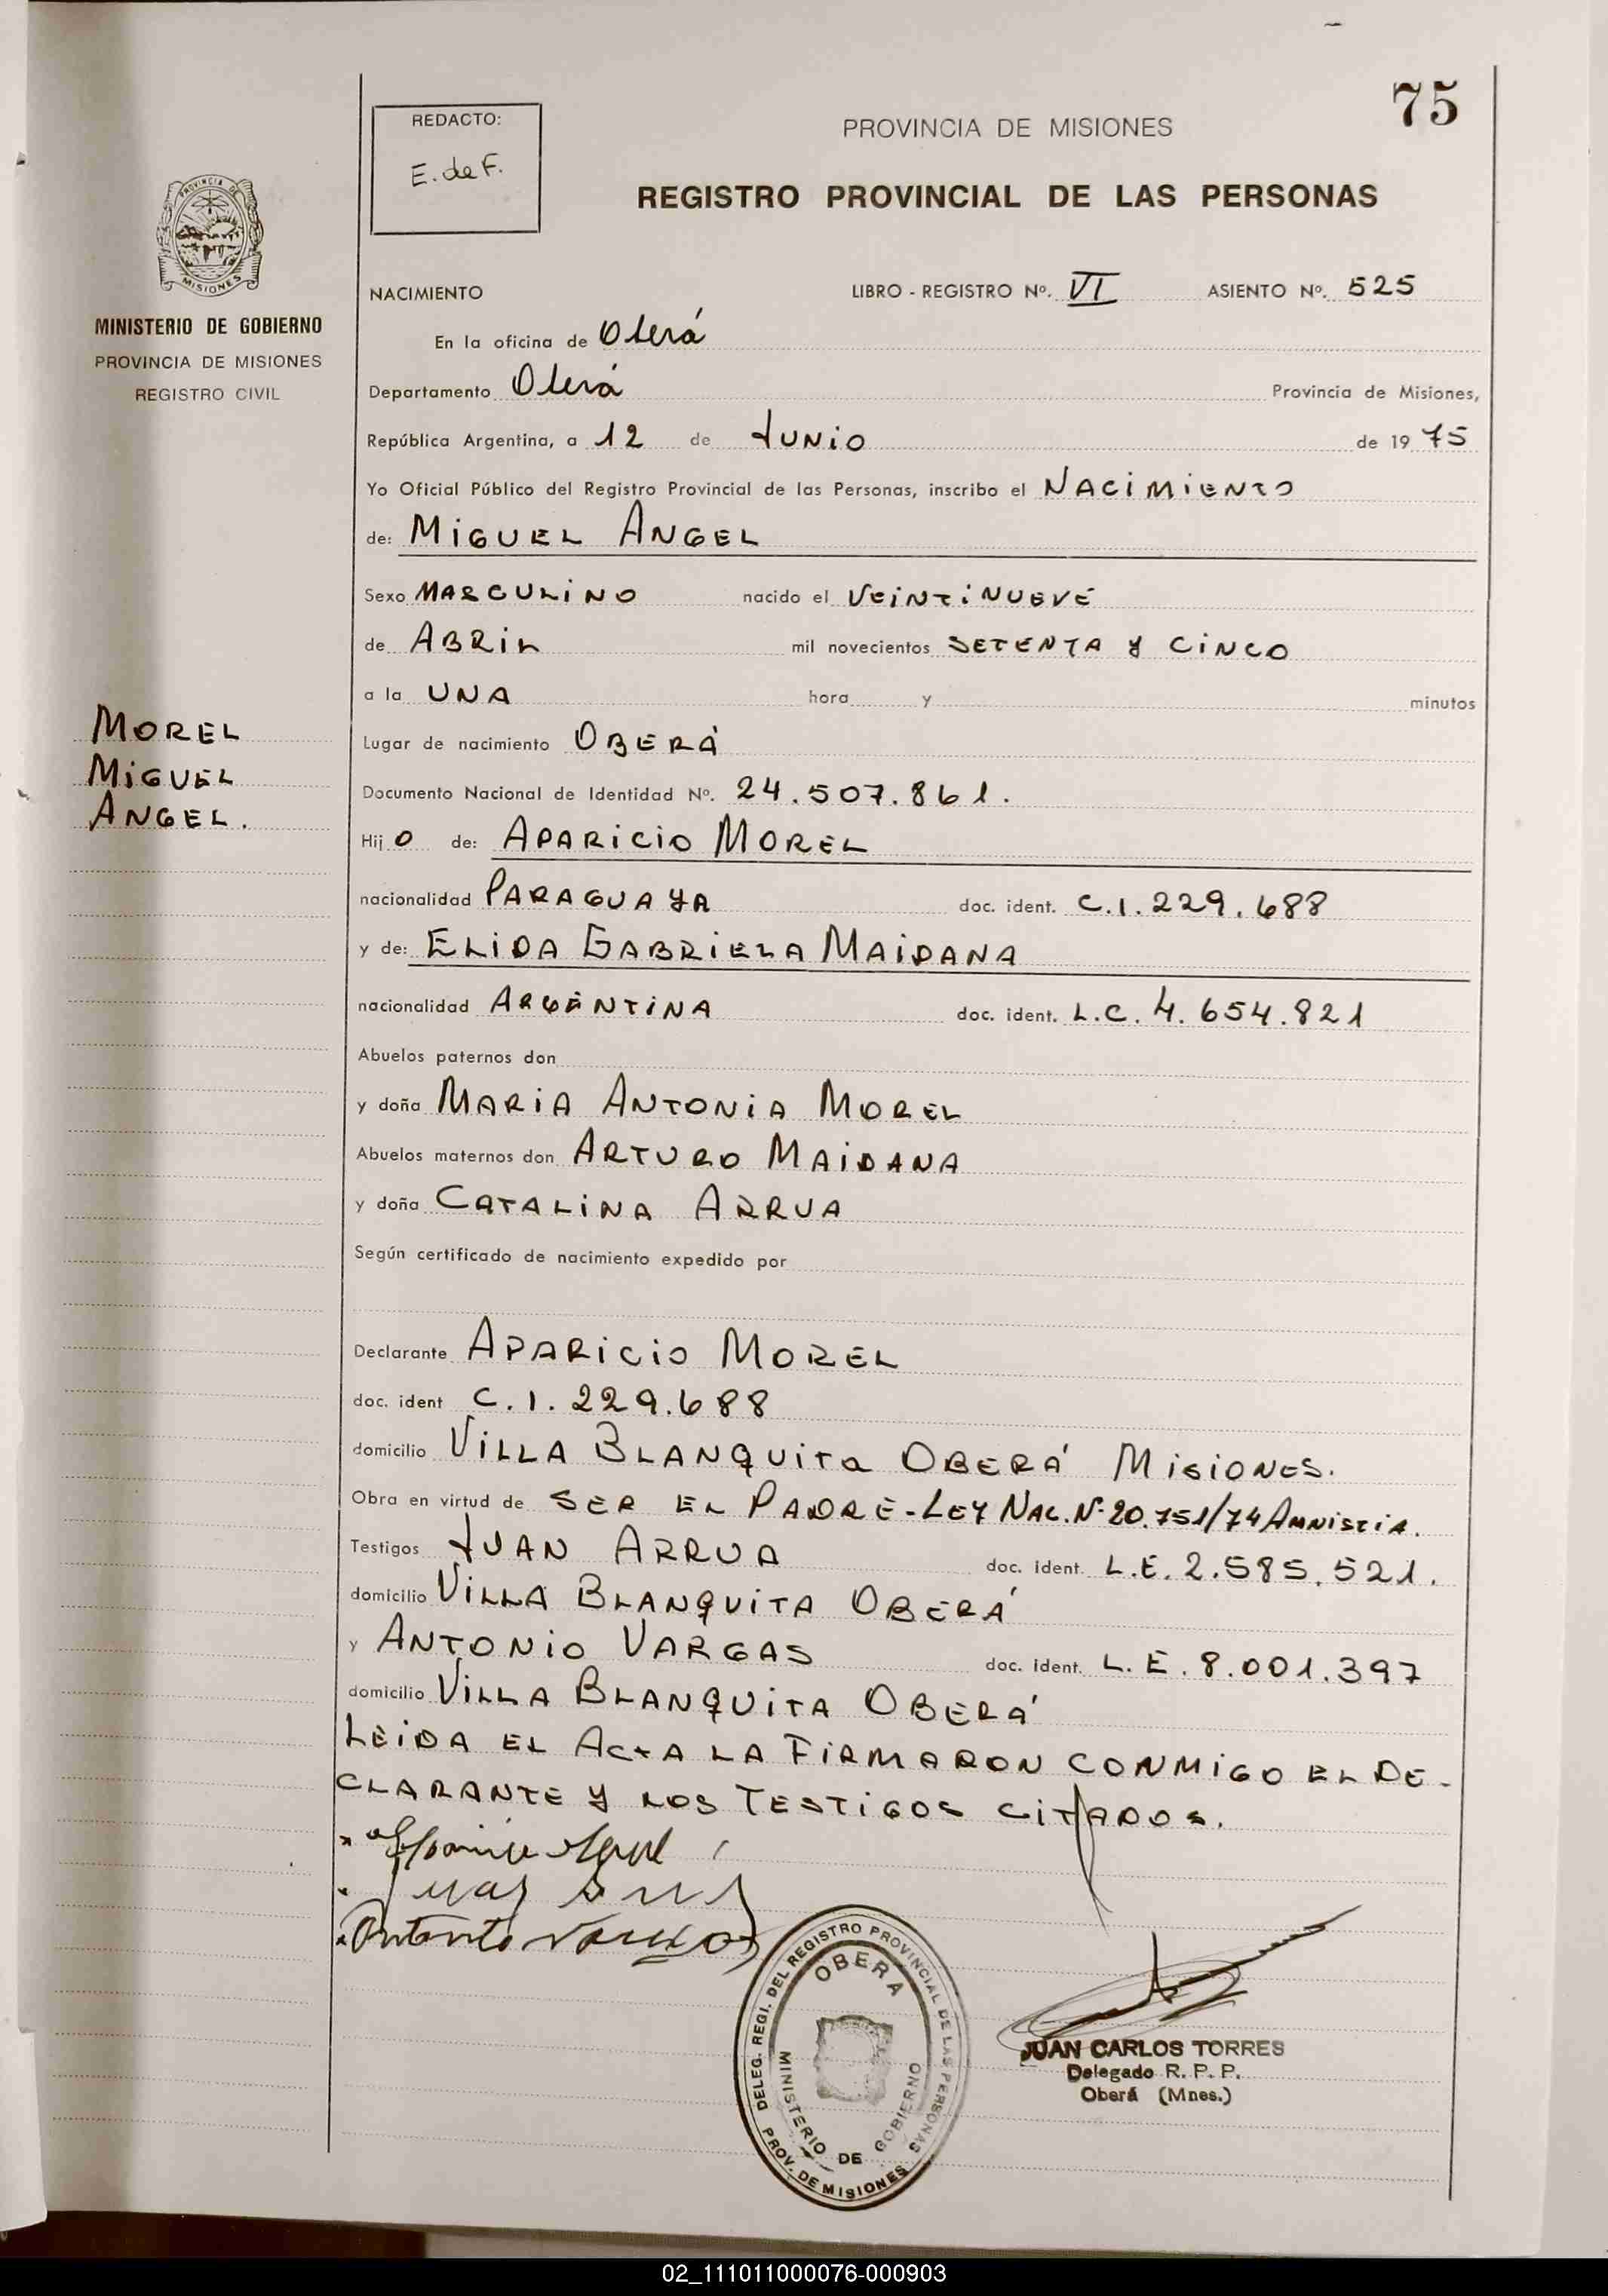 75
REDACTO:
E. de F.
PROVINCIA DE MISIONES
REGISTRO PROVINCIAL DE LAS PERSONAS
PROVINCIA DE
MISIONES
MINISTERIO DE GOBIERNO
PROVINCIA DE MISIONES
REGISTRO CIVIL
NACIMIENTO LIBRO - REGISTRO Nº. VI ASIENTO Nº. 525
En la oficina de Oberá
Departamento Oberá Provincia de Misiones,
República Argentina, a 12 de JUNIO de 1975
Yo Oficial Público del Registro Provincial de las Personas, inscribo el NACIMIENTO
de: MIGUEL ANGEL
Sexo MASCULINO nacido el VEINTINUEVE
de ABRIL mil novecientos SETENTA Y CINCO
a la UNA hora y minutos
MOREL
MIGUEL
ANGEL.
Lugar de nacimiento OBERÁ
Documento Nacional de Identidad Nº. 24.507.861.
Hijo de: APARICIO MOREL
nacionalidad PARAGUAYA doc. ident. C.I. 229.688
y de: ELIDA GABRIELA MAIDANA
nacionalidad ARGENTINA doc. ident. L.C. 4.654.821
Abuelos paternos don
y doña MARIA ANTONIA MOREL
Abuelos maternos don ARTURO MAIDANA
y doña CATALINA ARRUA
Según certificado de nacimiento expedido por
Declarante APARICIO MOREL
doc. ident C.I. 229.688
domicilio VILLA BLANQUITA OBERÁ MISIONES.
Obra en virtud de SER EL PADRE-LEY NAC. Nº 20.751/74 AMNISTIA.
Testigos JUAN ARRUA doc. ident. L.E. 2.585.521.
domicilio VILLA BLANQUITA OBERÁ
y ANTONIO VARGAS doc. ident. L.E. 8.001.397
domicilio VILLA BLANQUITA OBERÁ
LEIDA EL ACTA LA FIRMARON CONMIGO EL DE-
CLARANTE Y LOS TESTIGOS CITADOS.
Antonio Vargas
DELEG. REGI. DEL REGISTRO PROVINCIAL DE LAS PERSONAS
OBERA
MINISTERIO DE GOBIERNO
PROV. DE MISIONES
JUAN CARLOS TORRES
Delegado R. P. P.
Oberá (Mnes.)
02_111011000076-000903